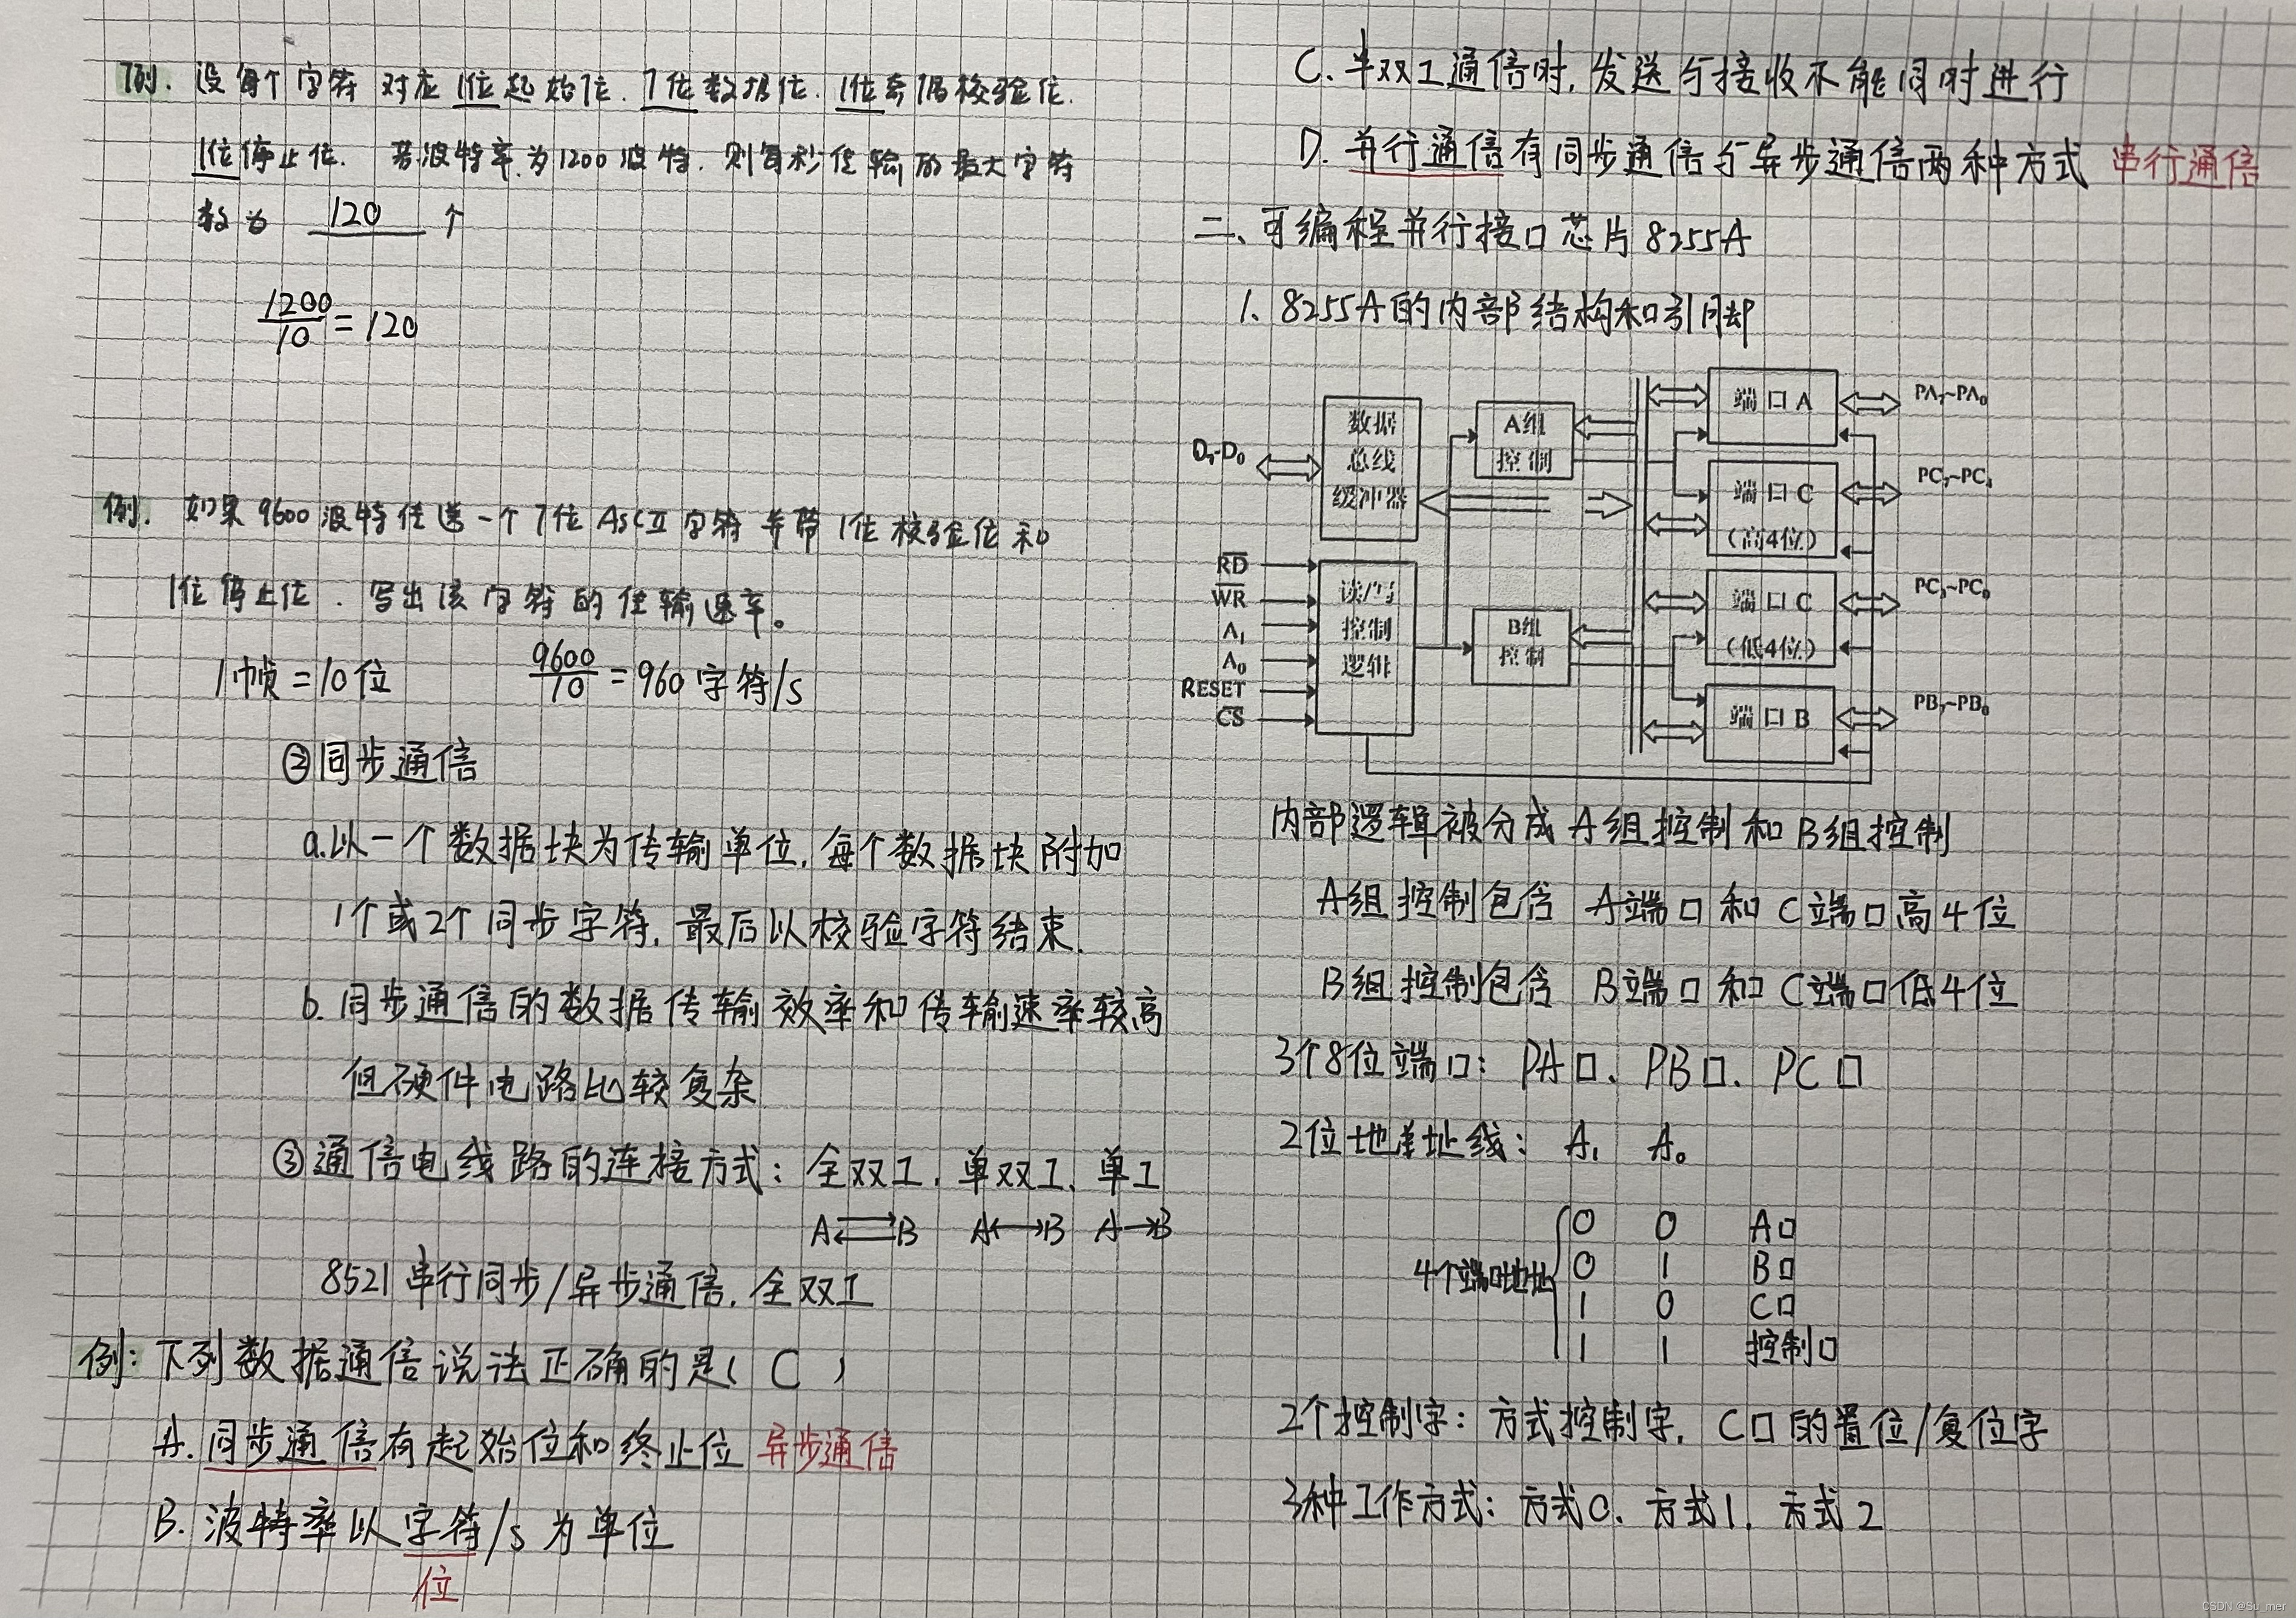 例. 设每个字符对应1位起始位、7位数据位、1位奇偶校验位、
1位停止位. 若波特率为1200波特, 则每秒传输的最大字符
数为 120 个
1200/10=120
例. 如果9600波特传送一个7位ASCII字符并带1位校验位和
1位停止位. 写出该字符的传输速率。
1帧=10位 9600/10=960字符/s
②同步通信
a.以一个数据块为传输单位, 每个数据块附加
1个或2个同步字符, 最后以校验字符结束.
b. 同步通信的数据传输效率和传输速率较高
但硬件电路比较复杂
③通信电线路的连接方式: 全双工、单双工、单工
A⇌B A↔B A→B
8521串行同步/异步通信, 全双工
例: 下列数据通信说法正确的是( C )
A. 同步通信有起始位和终止位 异步通信
B. 波特率以字符/s为单位
位
C. 半双工通信时, 发送与接收不能同时进行
D. 并行通信有同步通信与异步通信两种方式 串行通信
二、可编程并行接口芯片8255A
1. 8255A的内部结构和引脚
D7-D0
数据
总线
缓冲器
RD
WR
A1
A0
RESET
CS
读/写
控制
逻辑
A组
控制
B组
控制
端口A
PA7~PA0
端口C
(高4位)
PC7~PC4
端口C
(低4位)
PC3~PC0
端口B
PB7~PB0
内部逻辑被分成A组控制和B组控制
A组控制包含 A端口和C端口高4位
B组控制包含 B端口和C端口低4位
3个8位端口: PA口、PB口、PC口
2位地址线: A1 A0
4个端口地址
0 0 A口
0 1 B口
1 0 C口
1 1 控制口
2个控制字: 方式控制字, C口的置位/复位字
3种工作方式: 方式0、方式1、方式2
CSDN @Su_mer